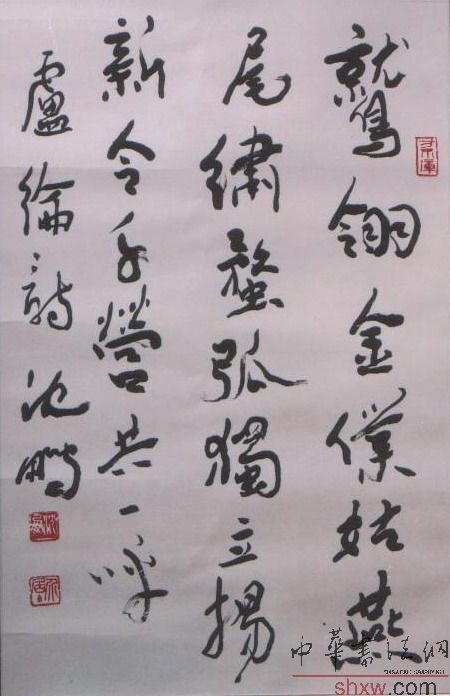 鷲翎金僕姑燕
尾繡蝥弧獨立揚
新令千營共一呼
盧綸詩 沈鵬
中華書法網
shxw.com